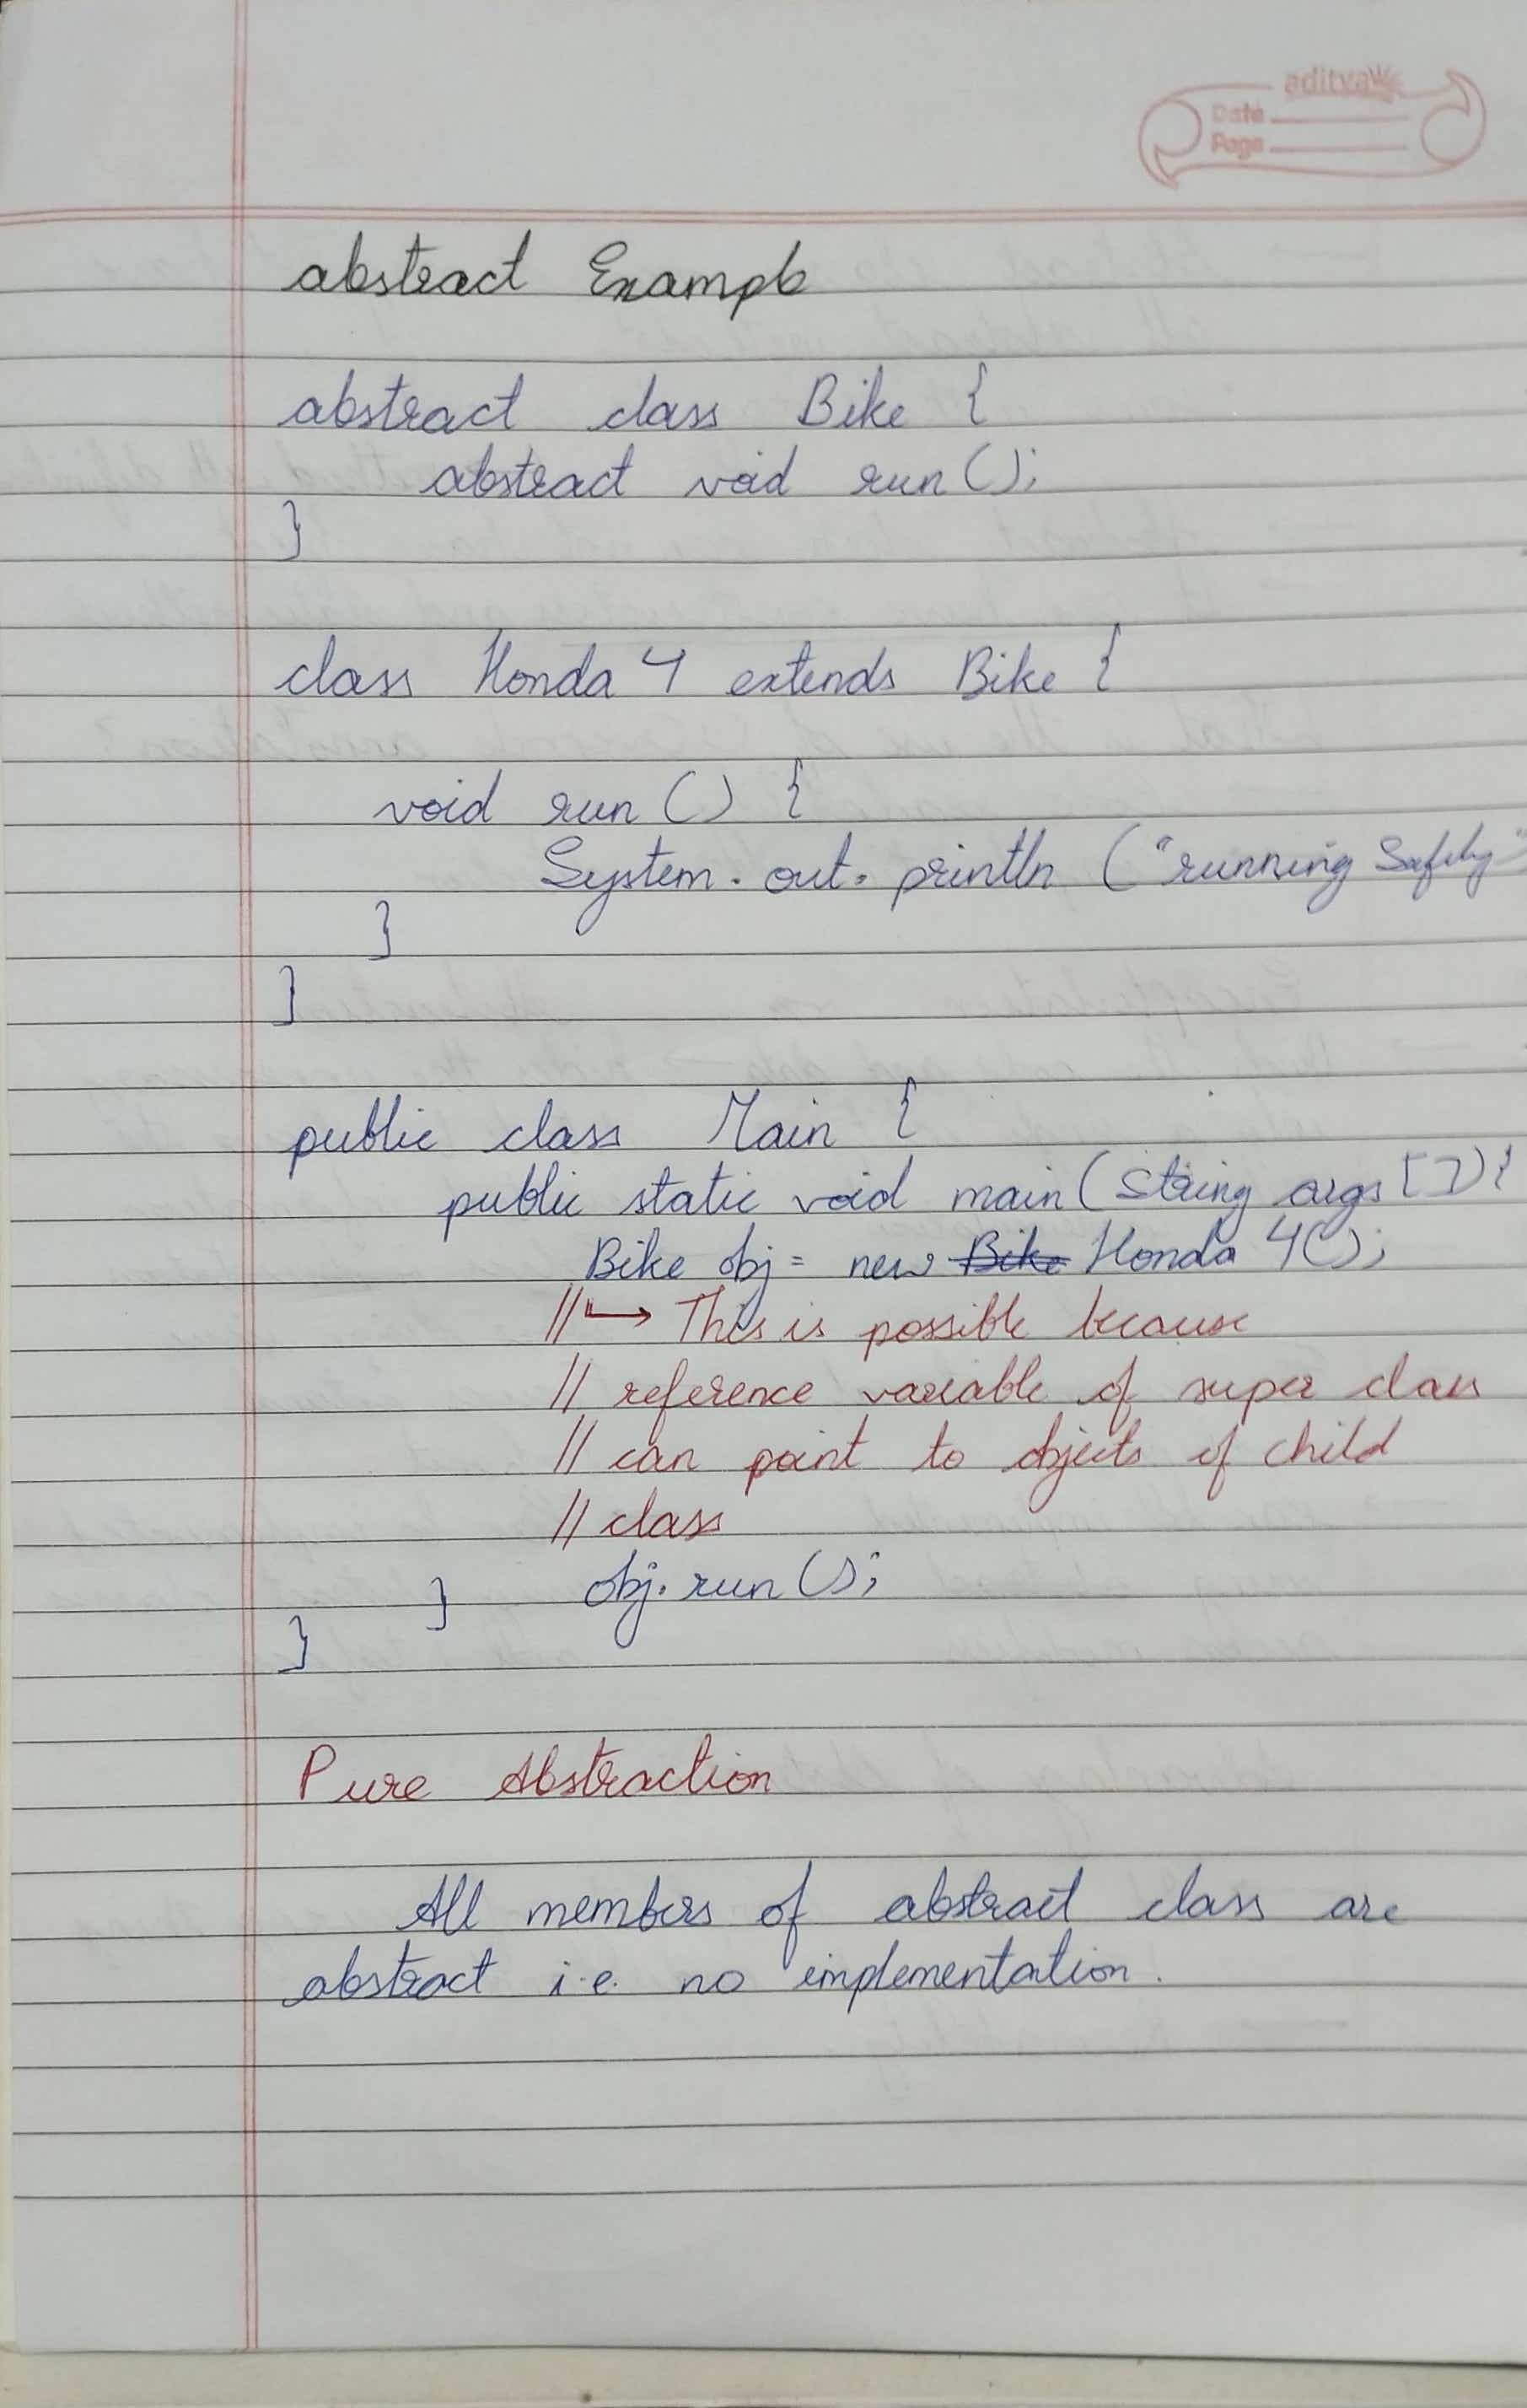 aditya
Date
Page
abstract Example
abstract class Bike {
abstract void run();
}
class Honda 4 extends Bike {
void run () {
System. out. println ("running Safely"
}
}
public class Main {
public static void main (String args []){
Bike obj = new Bike Honda 4();
//↳ This is possible because
// reference variable of super class
// can point to objects of child
// class
obj. run ();
}
}
Pure Abstraction
All members of abstract class are
abstract i.e. no implementation.